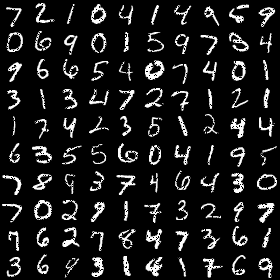 7 2 1 0 4 1 4 9 5 9
0 6 9 0 1 5 9 7 8 4
9 6 6 5 4 0 7 4 0 1
3 1 3 4 7 2 7 1 2 1
1 7 4 2 3 5 1 2 4 4
6 3 5 5 6 0 4 1 9 5
7 8 9 3 7 4 6 4 3 0
7 0 2 9 1 7 3 2 9 7
7 6 2 7 8 4 7 3 6 1
3 6 9 3 1 4 1 7 6 9